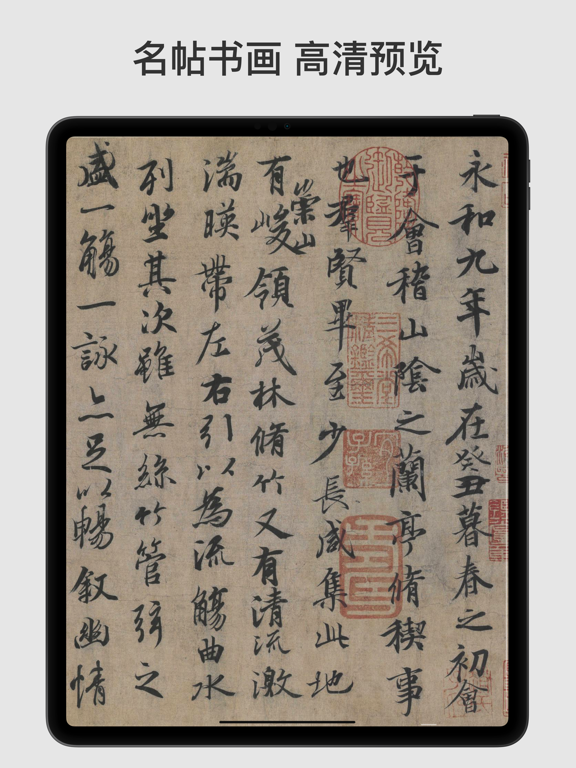 名帖书画 高清预览
永和九年歲在癸丑暮春之初會
于會稽山陰之蘭亭脩稧事
也羣賢畢至少長咸集此地
有崇山峻領茂林脩竹又有清流激
湍暎帶左右引以為流觴曲水
列坐其次雖無絲竹管弦之
盛一觴一詠亦足以暢敘幽情
三希堂精鑑璽
宜子孫